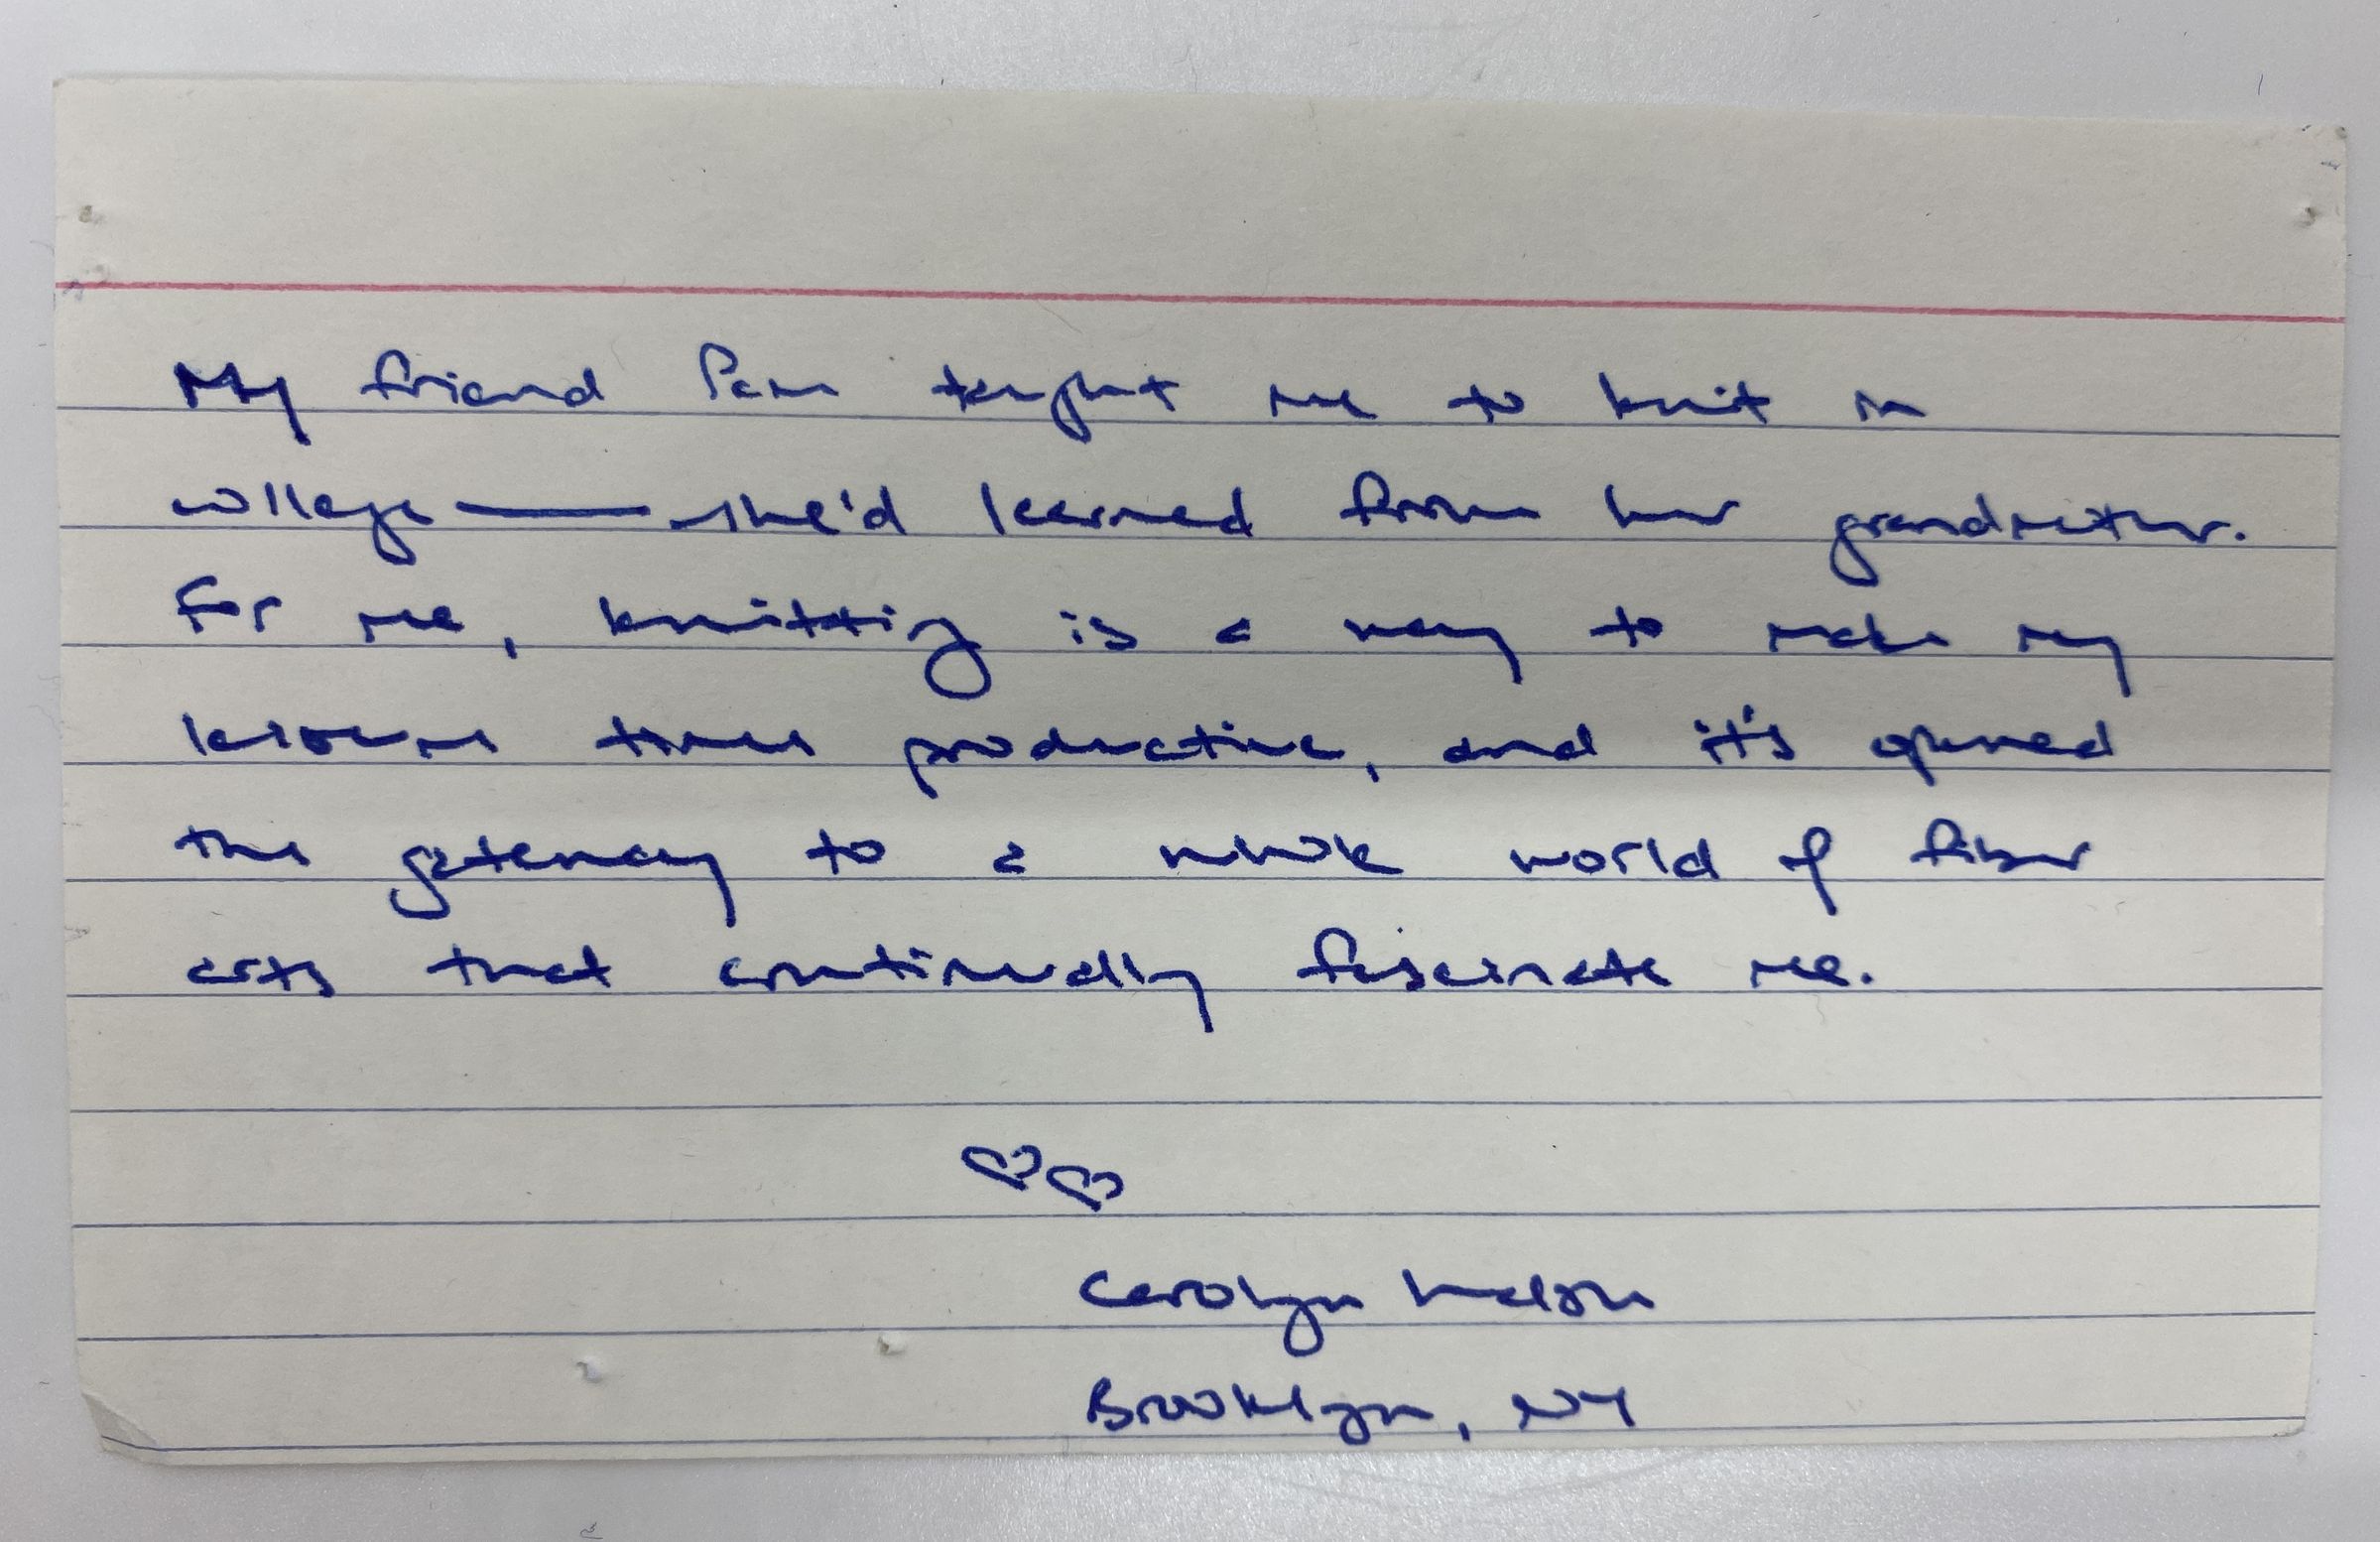 My friend Pam taught me to knit in
college — she'd learned from her grandmother.
For me, knitting is a way to make my
leisure time productive, and it's opened
the gateway to a whole world of fiber
arts that continually fascinate me.
♡♡
Carolyn
Brooklyn, NY